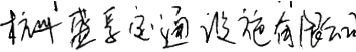 杭州盛孚交通设施有限公司